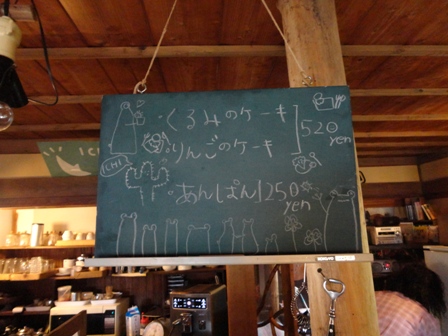 ・くるみのケーキ
・りんごのケーキ
520
yen
ICHI
・あんぱん
250
yen
ICHI